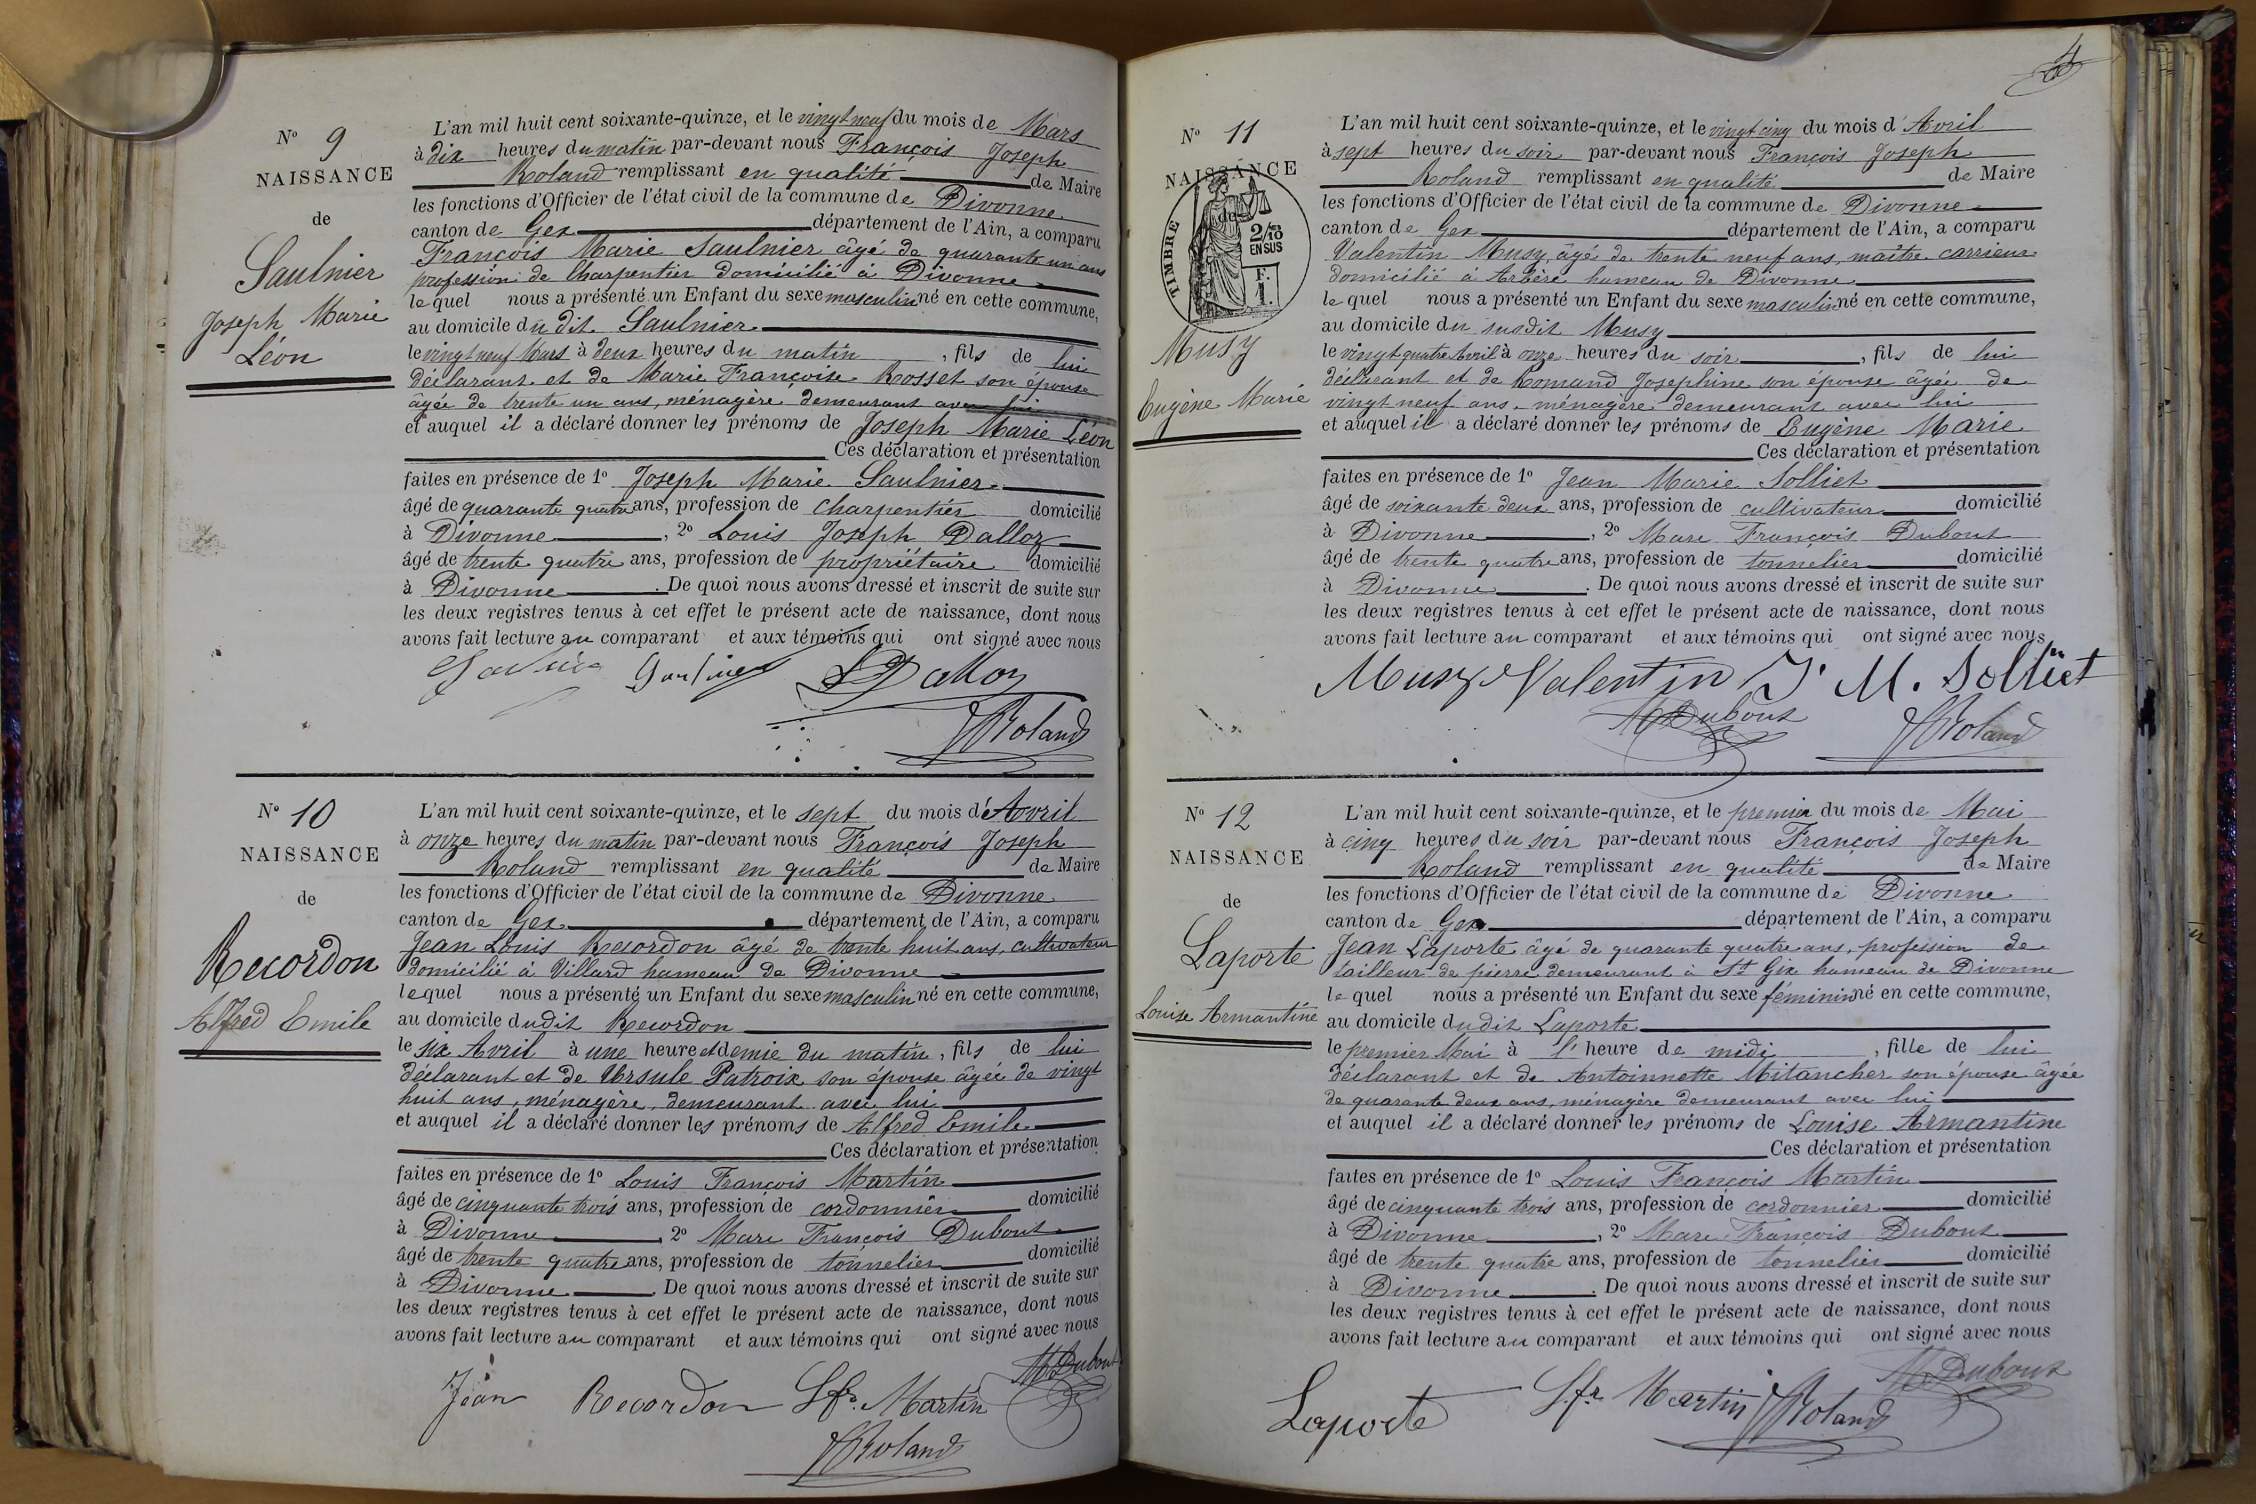 N° 9
NAISSANCE
de
Saulnier
Joseph Marie
Léon
L'an mil huit cent soixante-quinze, et le vingt neuf du mois de Mars
à dix heures du matin par-devant nous François Joseph
Roland remplissant en qualité de Maire
les fonctions d'Officier de l'état civil de la commune de Divonne
canton de Gex département de l'Ain, a comparu
François Marie Saulnier âgé de quarante un ans
profession de Charpentier domicilié à Divonne
lequel nous a présenté un Enfant du sexe masculin né en cette commune,
au domicile du dit Saulnier
le vingt neuf Mars à deux heures du matin, fils de lui
déclarant et de Marie Françoise Rosset son épouse
âgée de trente un ans, ménagère demeurant avec lui
et auquel il a déclaré donner les prénoms de Joseph Marie Léon
Ces déclaration et présentation
faites en présence de 1° Joseph Marie Saulnier
âgé de quarante quatre ans, profession de charpentier domicilié
à Divonne, 2° Louis Joseph Dalloz
âgé de trente quatre ans, profession de propriétaire domicilié
à Divonne. De quoi nous avons dressé et inscrit de suite sur
les deux registres tenus à cet effet le présent acte de naissance, dont nous
avons fait lecture au comparant et aux témoins qui ont signé avec nous
Saulnier Dalloz
Roland
N° 10
NAISSANCE
de
Recordon
Alfred Emile
L'an mil huit cent soixante-quinze, et le sept du mois d'Avril
à onze heures du matin par-devant nous François Joseph
Roland remplissant en qualité de Maire
les fonctions d'Officier de l'état civil de la commune de Divonne
canton de Gex département de l'Ain, a comparu
Jean Louis Recordon âgé de trente huit ans, cultivateur
domicilié à Villard hameau de Divonne
lequel nous a présenté un Enfant du sexe masculin né en cette commune,
au domicile dudit Recordon
le six Avril à une heure et demie du matin, fils de lui
déclarant et de Ursule Patroix son épouse âgée de vingt
huit ans, ménagère, demeurant avec lui
et auquel il a déclaré donner les prénoms de Alfred Emile
Ces déclaration et présentation
faites en présence de 1° Louis François Martin
âgé de cinquante trois ans, profession de cordonnier domicilié
à Divonne, 2° Marc François Dubout
âgé de trente quatre ans, profession de tonnelier domicilié
à Divonne. De quoi nous avons dressé et inscrit de suite sur
les deux registres tenus à cet effet le présent acte de naissance, dont nous
avons fait lecture au comparant et aux témoins qui ont signé avec nous
Jean Recordon L fs. Martin M Dubout
Roland
4
N° 11
NAISSANCE
du
TIMBRE
2/10 EN SUS
F. 1.
Musy
Eugène Marie
L'an mil huit cent soixante-quinze, et le vingt cinq du mois d'Avril
à sept heures du soir par-devant nous François Joseph
Roland remplissant en qualité de Maire
les fonctions d'Officier de l'état civil de la commune de Divonne
canton de Gex département de l'Ain, a comparu
Valentin Musy, âgé de trente neuf ans, maître carrieur
domicilié à Arbère hameau de Divonne
lequel nous a présenté un Enfant du sexe masculin né en cette commune,
au domicile du susdit Musy
le vingt quatre Avril à onze heures du soir, fils de lui
déclarant et de Romand Josephine son épouse âgée de
vingt neuf ans, ménagère demeurant avec lui
et auquel il a déclaré donner les prénoms de Eugène Marie
Ces déclaration et présentation
faites en présence de 1° Jean Marie Solliet
âgé de soixante deux ans, profession de cultivateur domicilié
à Divonne, 2° Marc François Dubout
âgé de trente quatre ans, profession de tonnelier domicilié
à Divonne. De quoi nous avons dressé et inscrit de suite sur
les deux registres tenus à cet effet le présent acte de naissance, dont nous
avons fait lecture au comparant et aux témoins qui ont signé avec nous
Musy Valentin J. M. Solliet
M Dubout Roland
N° 12
NAISSANCE
de
Laporte
Louise Armantine
L'an mil huit cent soixante-quinze, et le premier du mois de Mai
à cinq heures du soir par-devant nous François Joseph
Roland remplissant en qualité de Maire
les fonctions d'Officier de l'état civil de la commune de Divonne
canton de Gex département de l'Ain, a comparu
Jean Laporte âgé de quarante quatre ans, profession de
tailleur de pierre demeurant à St Gix hameau de Divonne
lequel nous a présenté un Enfant du sexe féminin né en cette commune,
au domicile dudit Laporte
le premier Mai à l'heure de midi, fille de lui
déclarant et de Antoinnette Mitancher son épouse âgée
de quarante deux ans, ménagère demeurant avec lui
et auquel il a déclaré donner les prénoms de Louise Armantine
Ces déclaration et présentation
faites en présence de 1° Louis François Martin
âgé de cinquante trois ans, profession de cordonnier domicilié
à Divonne, 2° Marc François Dubout
âgé de trente quatre ans, profession de tonnelier domicilié
à Divonne. De quoi nous avons dressé et inscrit de suite sur
les deux registres tenus à cet effet le présent acte de naissance, dont nous
avons fait lecture au comparant et aux témoins qui ont signé avec nous
Laporte L. fr Martin Roland M Dubout